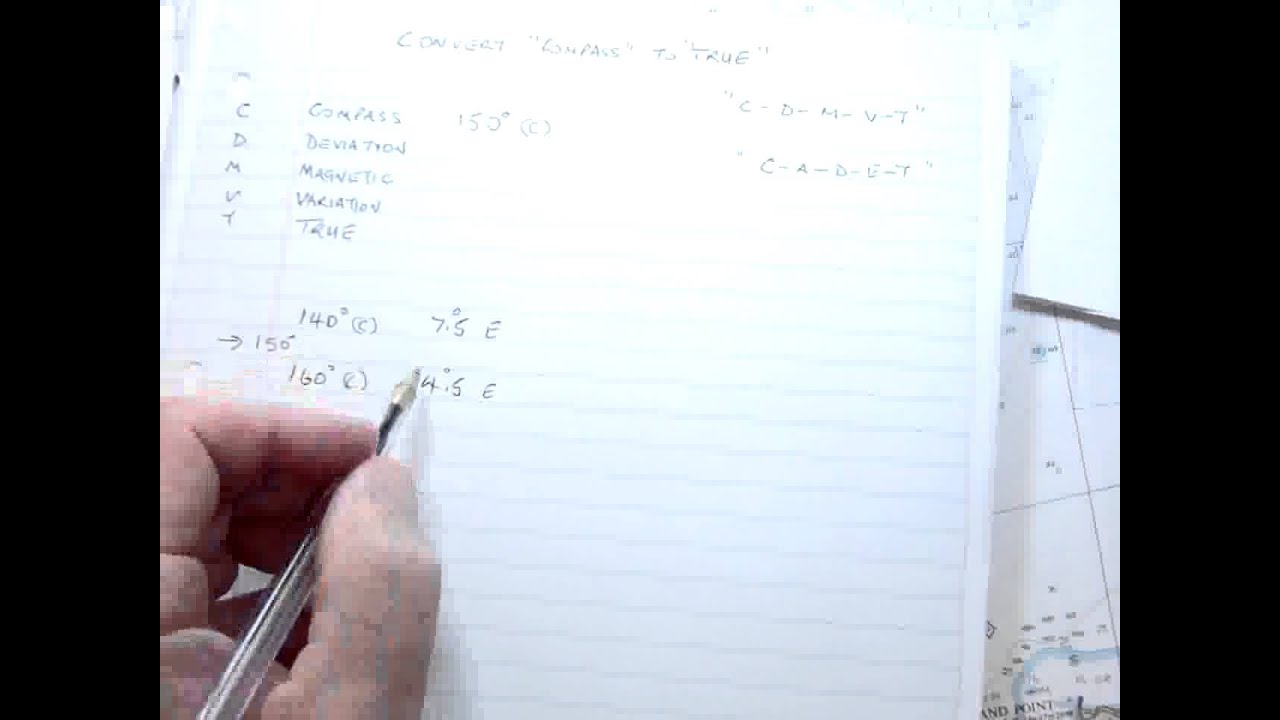 CONVERT "COMPASS" TO "TRUE"
"C-D-M-V-T"
C COMPASS 150° (C)
D DEVIATION
"C-A-D-E-T"
M MAGNETIC
V VARIATION
T TRUE
140° (C) 7.5° E
→ 150°
160° (C) 4.5° E
AND POINT